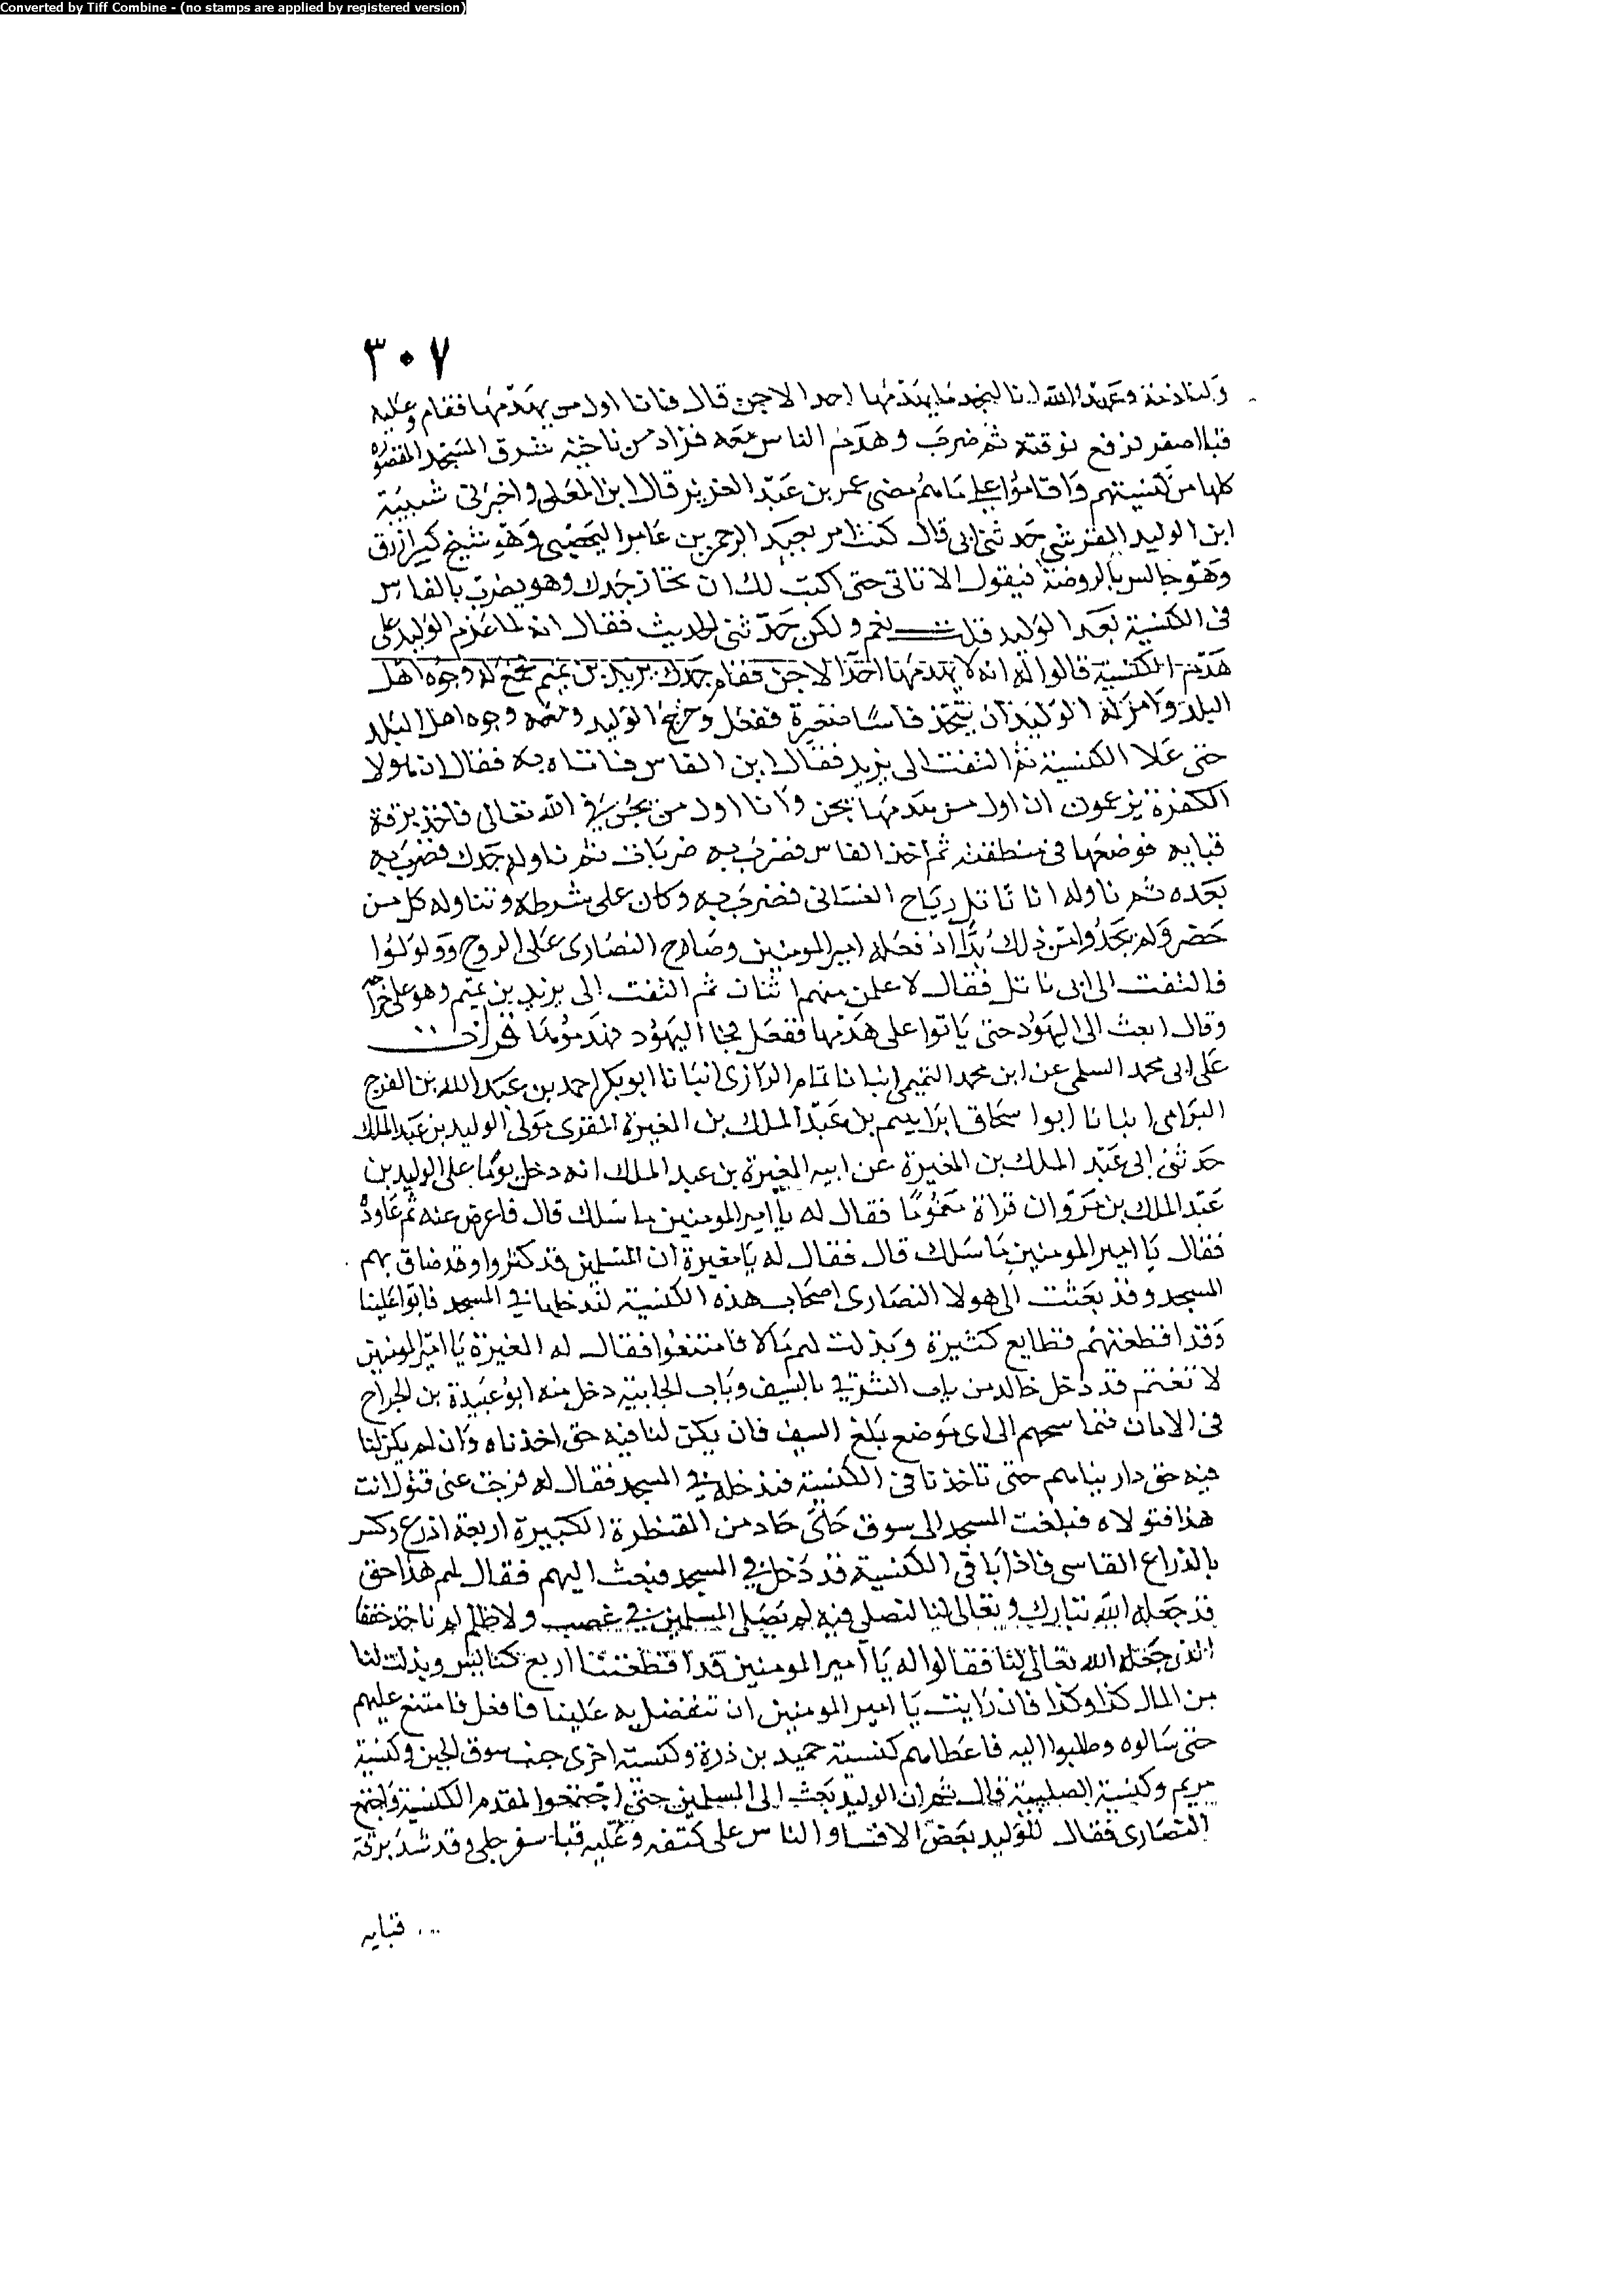 Converted by Tiff Combine - (no stamps are applied by registered version)
٣٠٧
ولنا ذمة وعهد الله انا لنجد ما يهدمها احد الا جن قال فانا اول من يهدمها فقام وعليه
قبا اصفر فرفع ثم ضرب وهدم الناس معه فزاد من ناحية شرق المسجد المقصورة
كلها من كنيستهم واقاموا على مضى عمر بن عبد العزيز قال ابن المعلى واخبرنى شبيبة
ابن الوليد القرشى حدثنى ابى قال كنت امر بعبد الرحمن بن عامر اليحصبى وهو شيخ كبير ازرق
وهو جالس بالروضة فيقول الا تاتى حتى اكتب لك ان تختار جدك وهو يضرب بالفاس
فى الكنيسة بعد الوليد قلت نعم ولكن حدثنى الحديث فقال انه لما عزم الوليد على
هدم الكنيسة قالوا له انه لا يهدمها احدا الا جن فقام جدك يزيد بن تميم فجمع له وجوه اهل
البلد وامر له الوليد ان يتخذ فاسا صغيرة ففعل وخرج الوليد ومعه وجوه اهل البلد
حتى علا الكنيسة ثم التفت الى يزيد فقال اين الفاس فاتاه به فقال ان هولا
الكفرة يزعمون ان اول من يهدمها يجن وانا اول من يجن فى الله تعالى فاخذ بزقة
قبايه فوضعها فى منطقته ثم اخذ الفاس فضرب به ضربات ثم ناوله جدك فضرب به
بعده ثم ناوله ابا ناتل رياح الغسانى فضرب به وكان على شرطه وتناوله كل من
حضر ولم يجدوا من ذلك بدا اذ فعله امير المومنين وصاح النصارى على الدوج وولولوا
فالتفت الى ابى ناتل فقال لا علمن منهم اثنان ثم التفت الى يزيد بن تميم وهو على خراجه
وقال ابعث الى اليهود حتى ياتوا على هدمها ففعل فجا اليهود فهدموها قرات
على ابى محمد السلمى عن ابن محمد التميمى انبانا تمام الرازى انبانا ابو بكر احمد بن عبد الله بن الفرج
البرامى انبانا ابوا سحاق ابراهيم بن عبد الملك بن المغيرة المقرى مولى الوليد بن عبد الملك
حدثنى ابى عبد الملك بن المغيرة عن ابيه المغيرة بن عبد الملك انه دخل يوما على الوليد بن
عبد الملك بن مروان فراه مغموما فقال له يا امير المومنين ما سلك قال فاعرض عنه ثم عاوده
فقال يا امير المومنين ما سلك قال فقال له يا مغيرة ان المسلمين قد كثروا وقد ضاق بهم
المسجد وقد بعثت الى هولا النصارى اصحاب هذه الكنيسة لندخلها فى المسجد فابوا علينا
وقد اقطعتهم قطايع كثيرة وبذلت لهم مالا فامتنعوا فقال له المغيرة يا امير المومنين
لا تغتم قد دخل خالد من باب الشرقى بالسيف وباب الجابية دخل منه ابو عبيدة بن الجراح
فى الامان فنماسحهم الى اى موضع بلغ السيف فان يكن لنا فيه حق اخذناه وان لم يكن لنا
فيه حق داريناهم حتى تاخذ نافى الكنيسة فندخله فى المسجد فقال له فرجت عنى فتول انت
هذا فتولاه فبلغت المسجد الى سوق حاى حاد من القنطرة الكبيرة اربعة اذرع وكسر
بالذراع القاسى فاذا باقى الكنيسة قد دخل فى المسجد فبعث اليهم فقال لهم هذا حق
قد جعله الله تبارك وتعالى لنا لنصلى فيه لم يصلى المسلمين فى غصب ولا ظلم لم ناخذ حقنا
الذى جعله الله تعالى لنا فقالوا له يا امير المومنين قد اقطعتنا اربع كنايس وبذلت لنا
من المال كذا وكذا فان رايت يا امير المومنين ان تتفضل به علينا فافعل فامتنع عليهم
حتى سالوه وطلبوا اليه فاعطاهم كنيسة حميد بن درة وكنيسة اخرى جنب سوق الجبن وكنيسة
مريم وكنيسة المصلبية قال ثم ان الوليد بعث الى المسلمين حتى اجتمعوا لمقدم الكنيسة واجتمع
النصارى فقال للوليد بعض الاقسا والناس على كتفه وعليه قبا سفرجلى وقد شد بزقة
قبايه